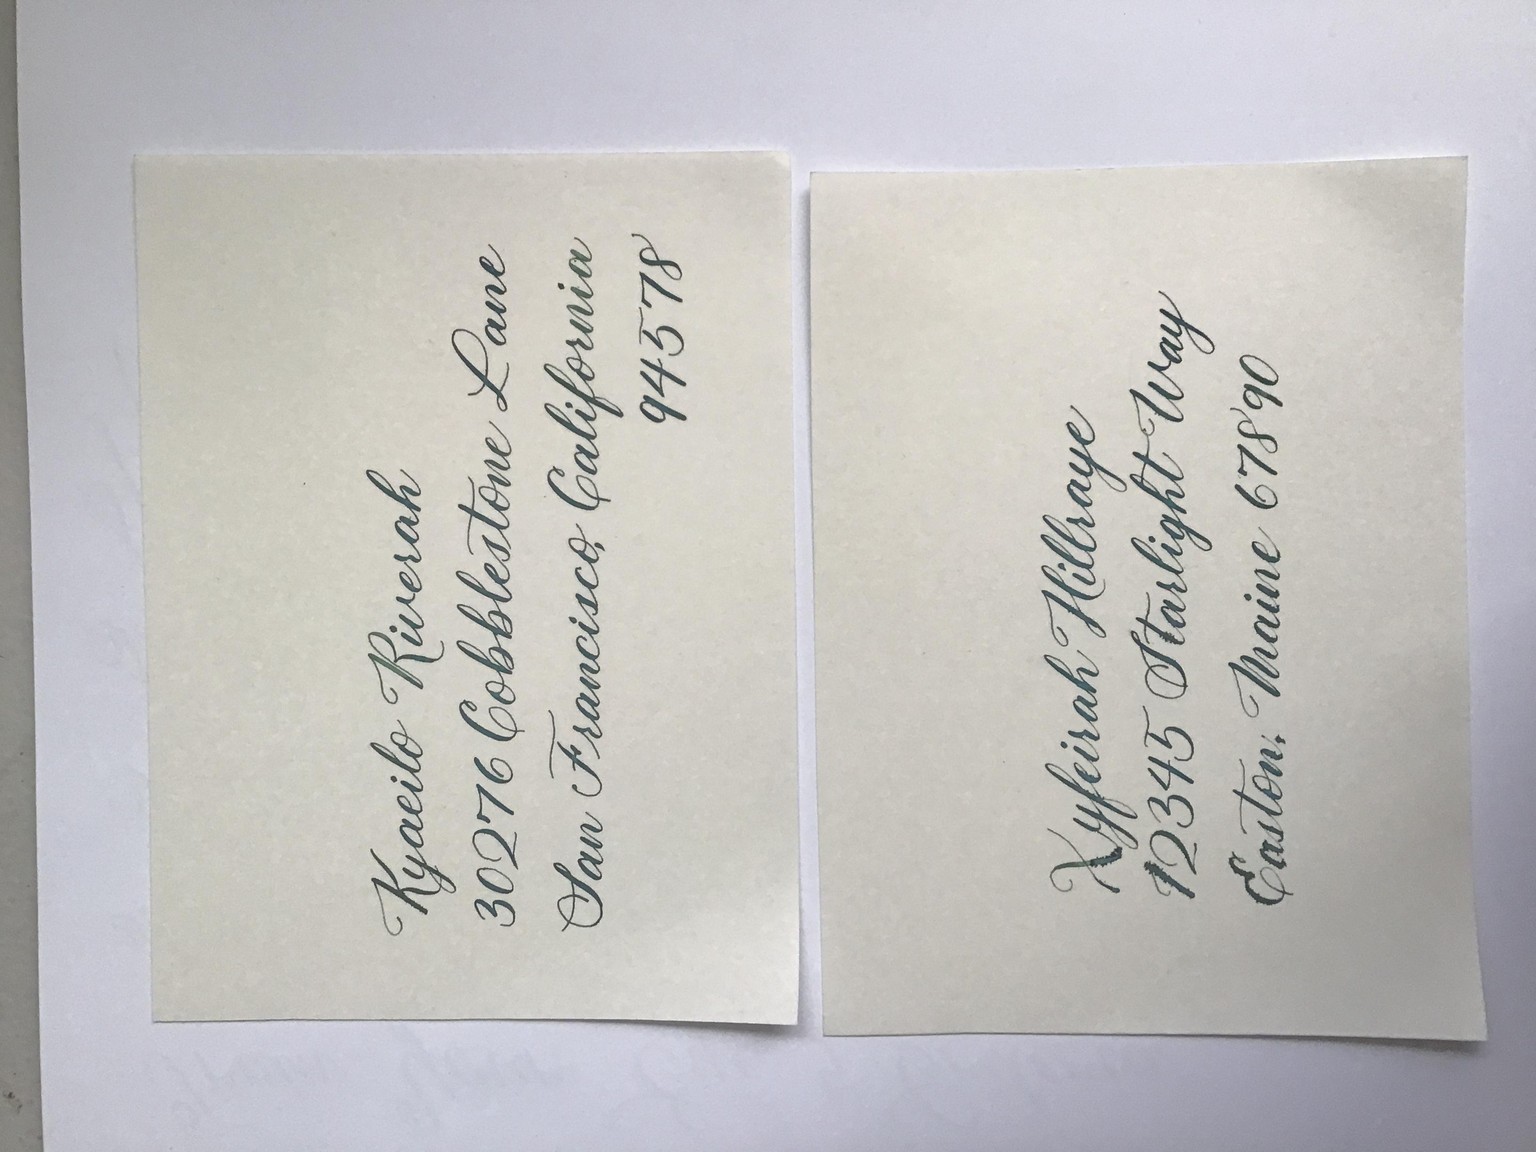 Kyaeilo Riverah
30276 Cobblestone Lane
San Francisco, California
94578
Xyfeirah Hillraye
12345 Starlight Way
Easton, Maine 67890